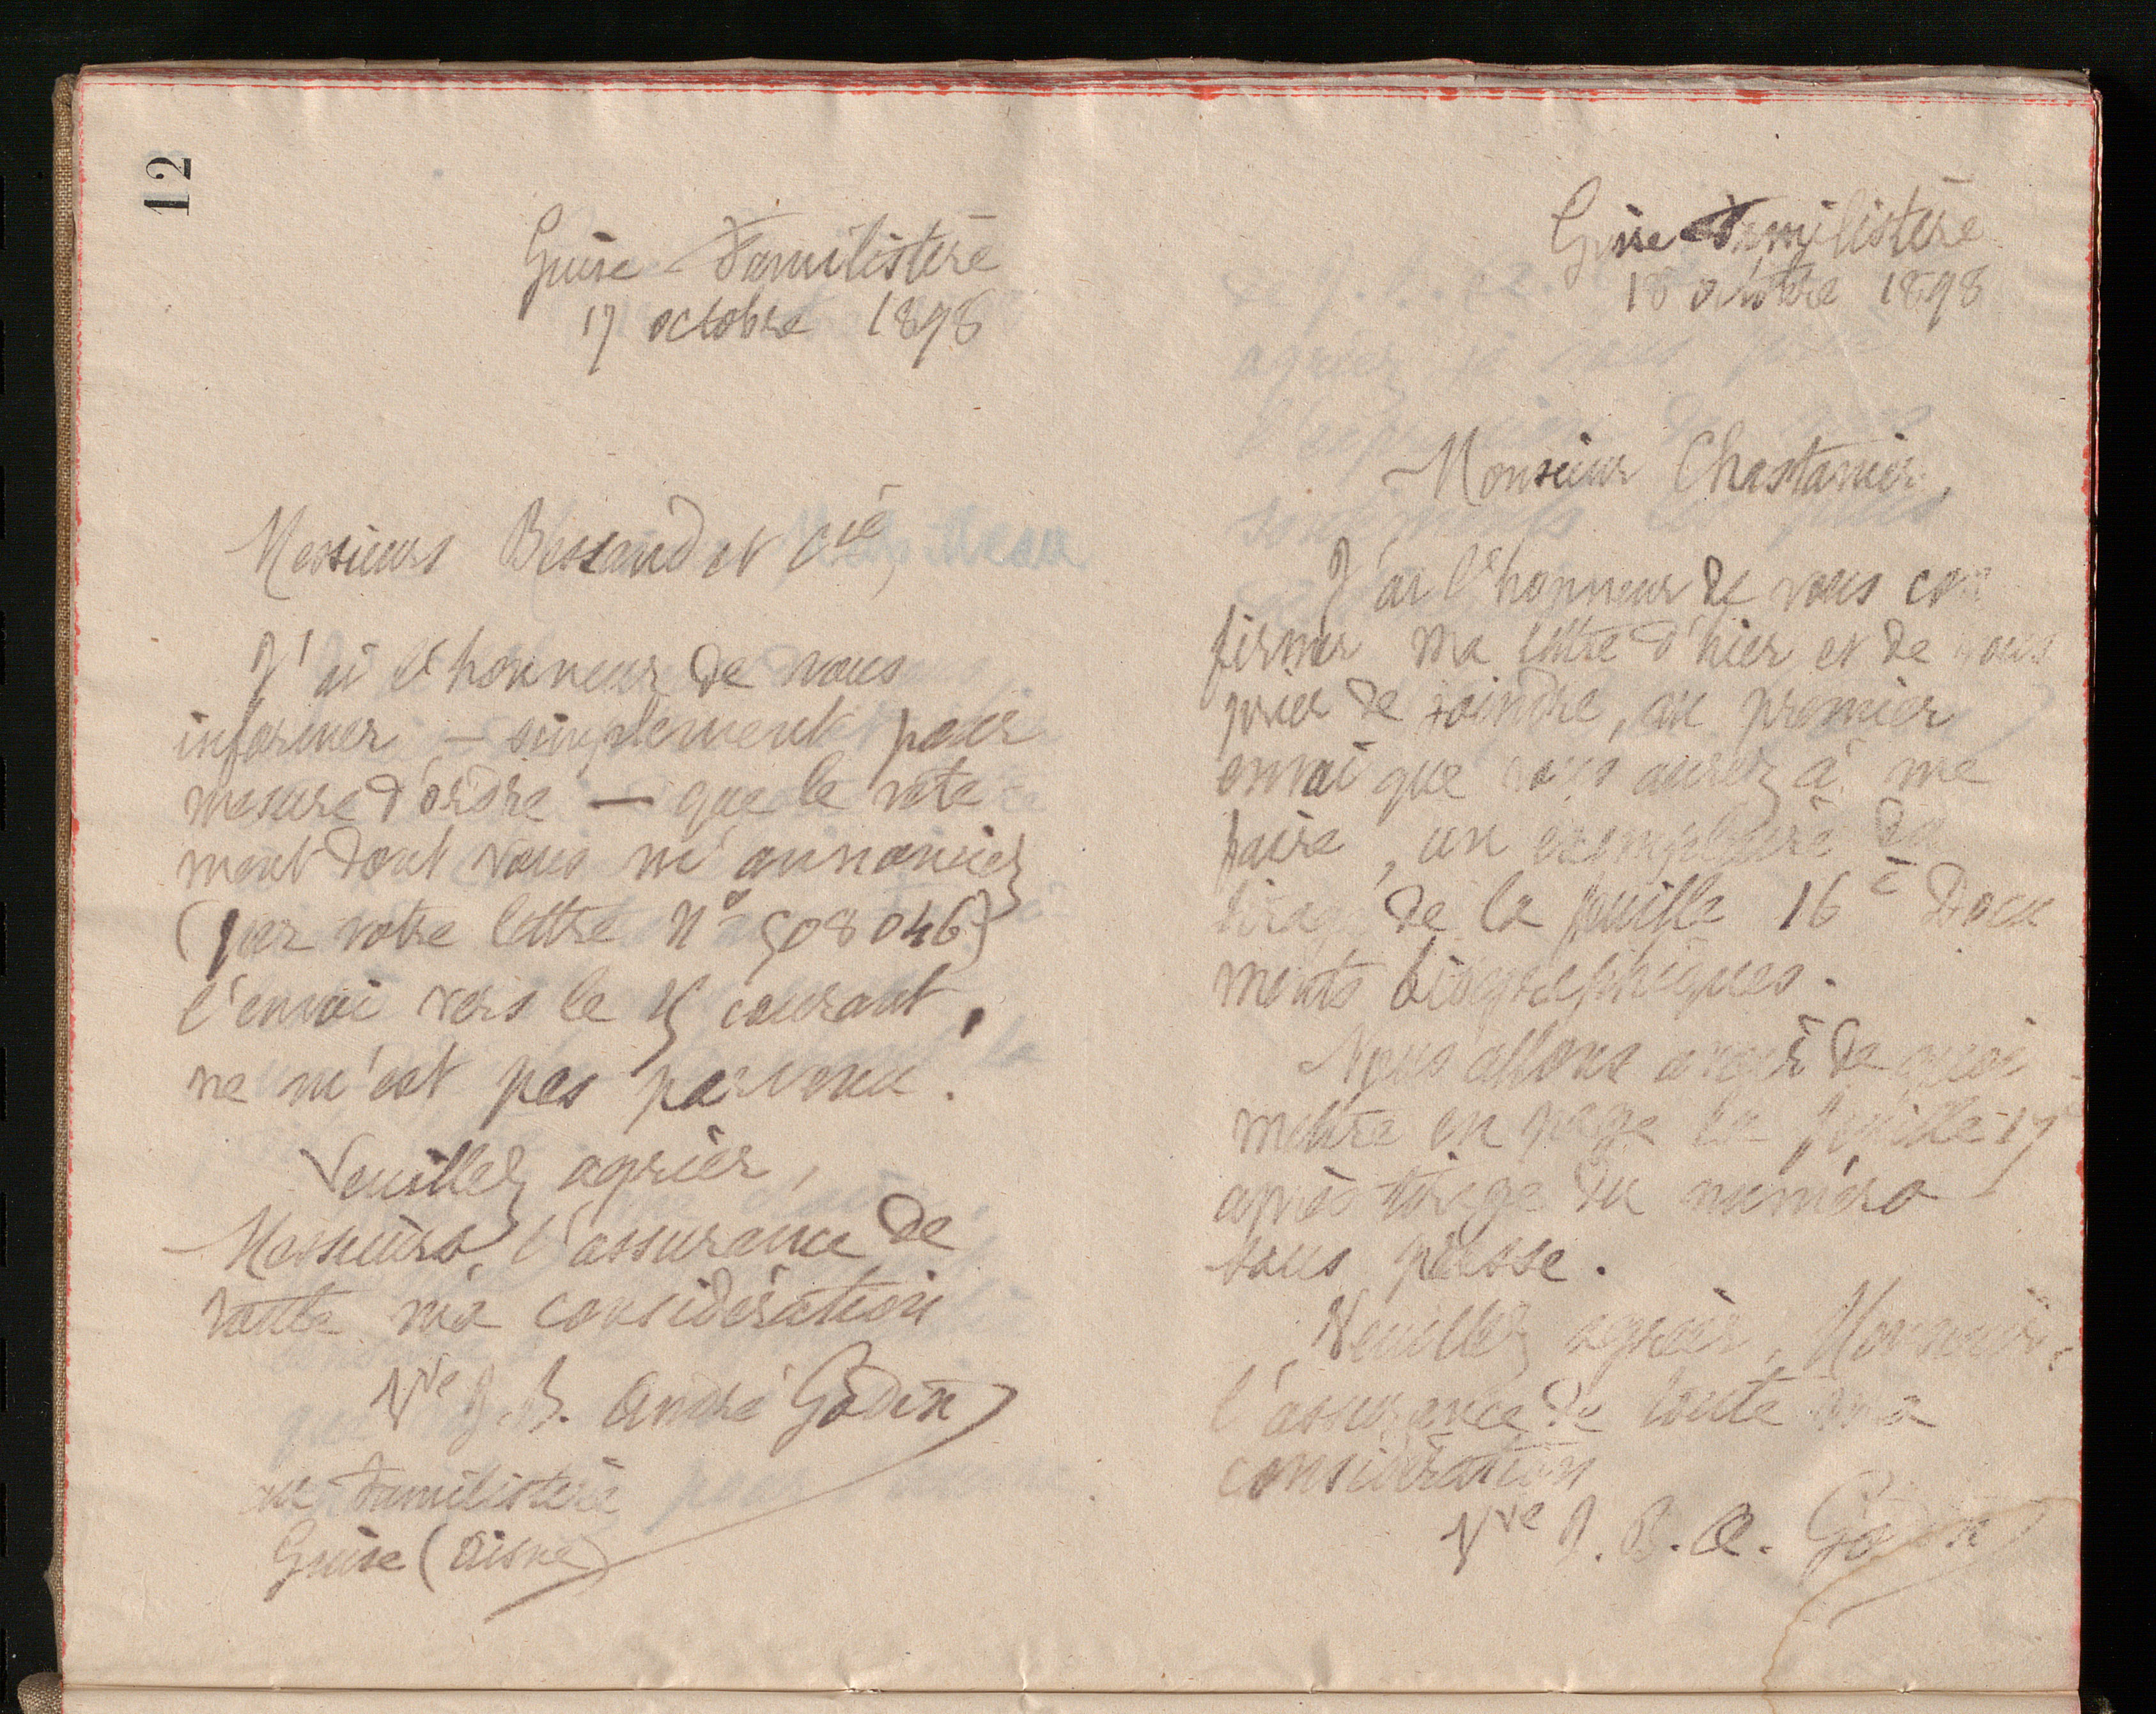 12
Guise Familistère
17 octobre 1898
Messieurs Bessand et Cie,
J'ai l'honneur de vous
informer – simplement pour
mesure d'ordre – que le vête
ment dont vous m'annonciez
(par votre lettre N° 508046)
l'envoi vers le 15 courant,
ne m'est pas parvenu.
Veuillez agréer,
Messieurs, l'assurance de
toute ma considération
Vve J. B. André Godin
au Familistère
Guise (Aisne)
Guise Familistère
18 octobre 1898
Monsieur Chastanier,
J'ai l'honneur de vous con
firmer ma lettre d'hier et de vous
prier de joindre, au premier
envoi que vous aurez à me
faire, un exemplaire du
tirage de la feuille 16e Docu
ments biographiques.
Nous allons avoir de quoi
mettre en page la feuille 17
après tirage du numéro
sous presse.
Veuillez agréer, Monsieur,
l'assurance de toute ma
considération
Vve J. B. A. Godin